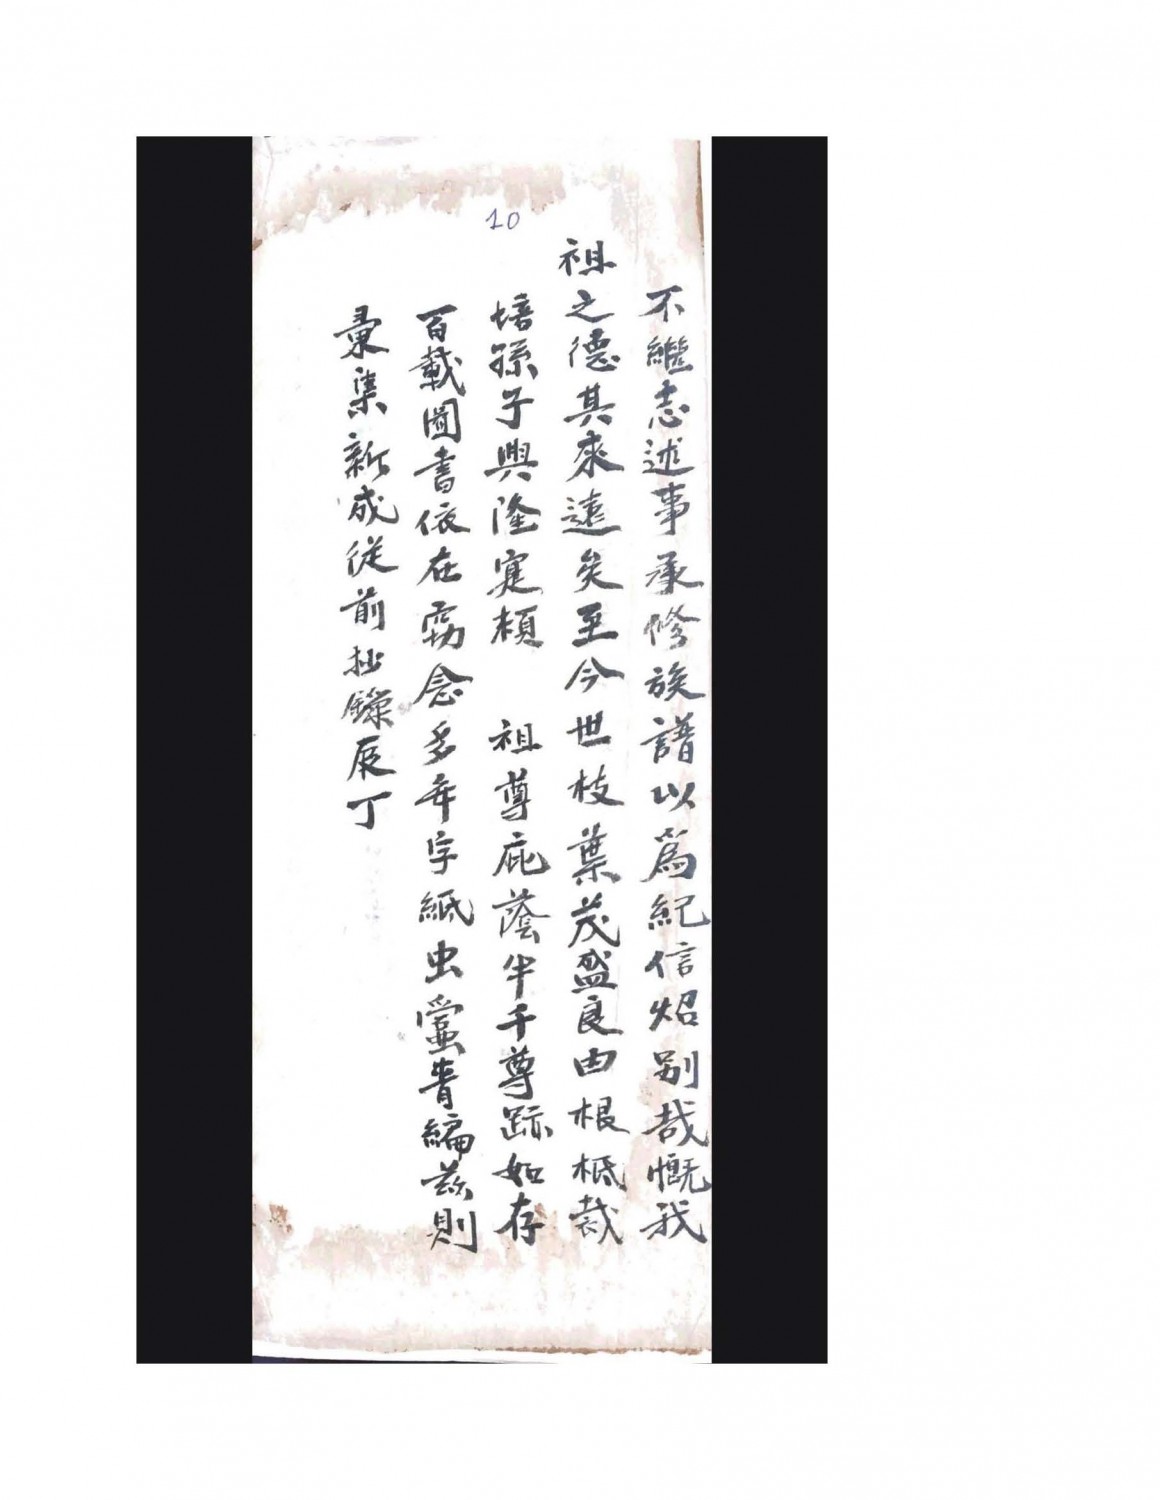 10
不繼志述事承修族譜以爲紀信炤别哉慨我
祖之德其來遠矣至今世枝葉茂盛良由根柢栽
培孫子興隆寔頼 祖尊庇蔭半千尊跡如存
百載圖書依在竊念多年字紙虫蠹青編兹則
彙集新成從前抄錄辰丁